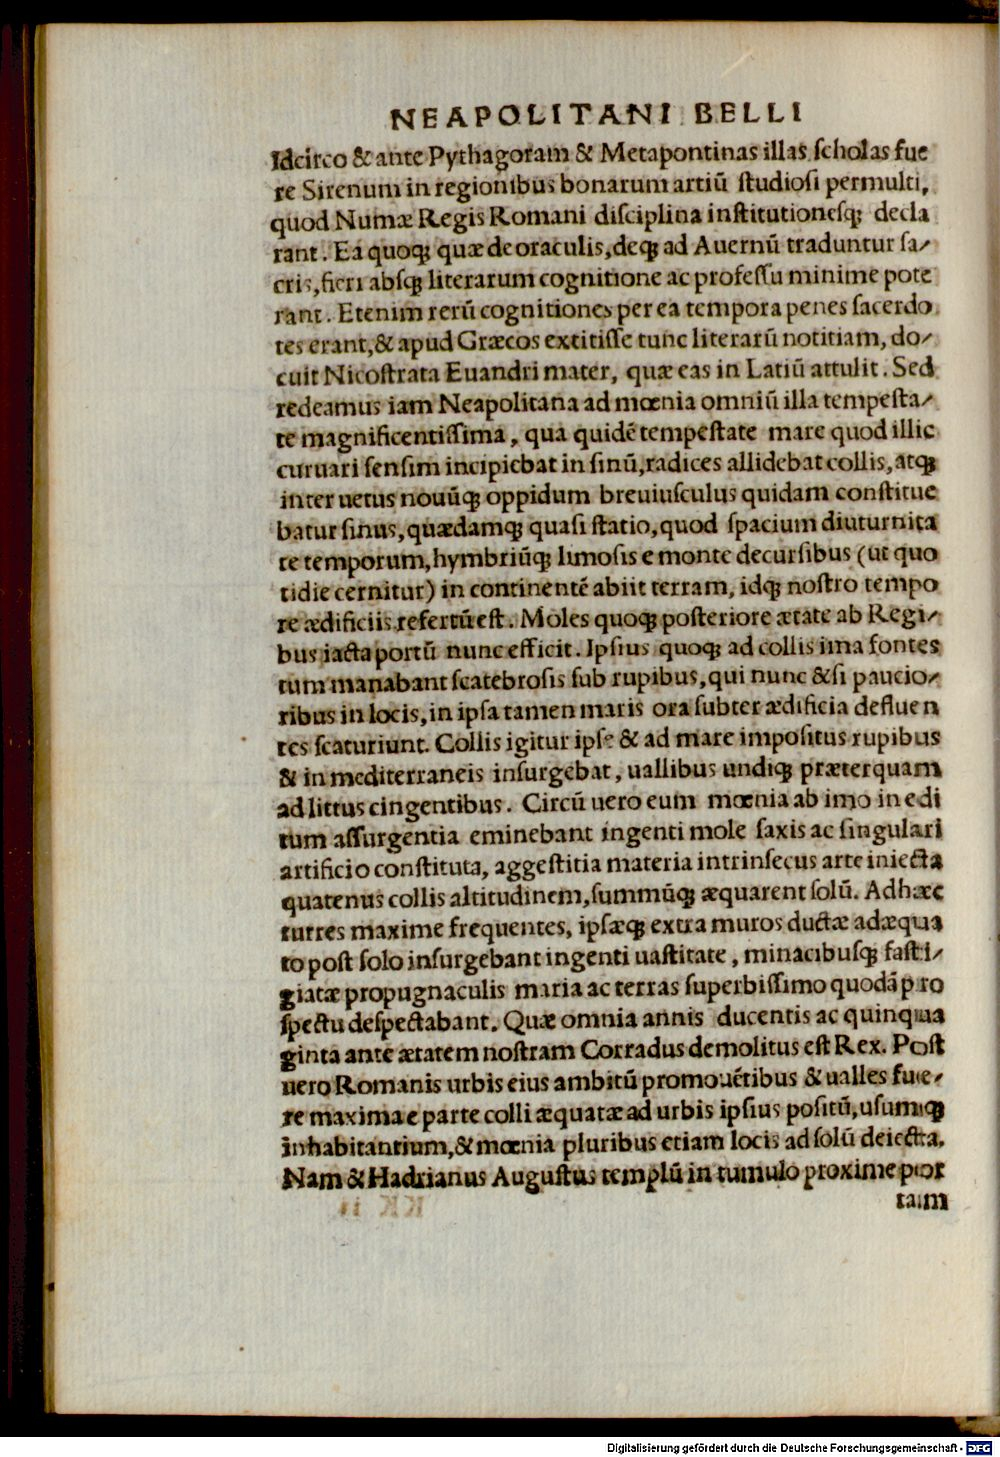 NEAPOLITANI BELLI
Idcirco & ante Pythagoram & Metapontinas illas scholas fue
re Sirenum in regionibus bonarum artiū studiosi permulti,
quod Numæ Regis Romani disciplina institutionesq; decla
rant. Ea quoq; quæ de oraculis, deq; ad Auernū traduntur sa/
cris, fieri absq; literarum cognitione ac professu minime pote
rant. Etenim rerū cognitiones per ea tempora penes sacerdo
tes erant, & apud Græcos extitisse tunc literarū notitiam, do/
cuit Nicostrata Euandri mater, quæ eas in Latiū attulit. Sed
redeamus iam Neapolitana ad mœnia omniū illa tempesta/
te magnificentissima, qua quidē tempestate mare quod illic
curuari sensim incipiebat in sinū, radices allidebat collis, atq;
inter uetus nouūq; oppidum breuiusculus quidam constitue
batur sinus, quædamq; quasi statio, quod spacium diuturnita
te temporum, hymbriūq; limosis e monte decursibus (ut quo
tidie cernitur) in continentē abiit terram, idq; nostro tempo
re ædificiis refertū est. Moles quoq; posteriore ætate ab Regi/
bus iacta portū nunc efficit. Ipsius quoq; ad collis ima fontes
tum manabant scatebrosis sub rupibus, qui nunc & si paucio/
ribus in locis, in ipsa tamen maris ora subter ædificia defluen
tes scaturiunt. Collis igitur ipse & ad mare impositus rupibus
& in mediterraneis insurgebat, uallibus undiq; præterquam
ad littus cingentibus. Circū uero eum mœnia ab imo in edi
tum assurgentia eminebant ingenti mole saxis ac singulari
artificio constituta, aggestitia materia intrinsecus arte iniecta
quatenus collis altitudinem, summūq; æquarent solū. Ad hæc
turres maxime frequentes, ipsæq; extra muros ductæ adæqua
to post solo insurgebant ingenti uastitate, minacibusq; fasti/
giatæ propugnaculis maria ac terras superbissimo quodā pro
spectu despectabant. Quæ omnia annis ducentis ac quinqua
ginta ante ætatem nostram Corradus demolitus est Rex. Post
uero Romanis urbis eius ambitū promouētibus & ualles fue/
re maxima e parte colli æquatæ ad urbis ipsius positū, usumq;
inhabitantium, & mœnia pluribus etiam locis ad solū deiecta.
Nam & Hadrianus Augustus templū in tumulo proxime por
tam
Digitalisierung gefördert durch die Deutsche Forschungsgemeinschaft - DFG